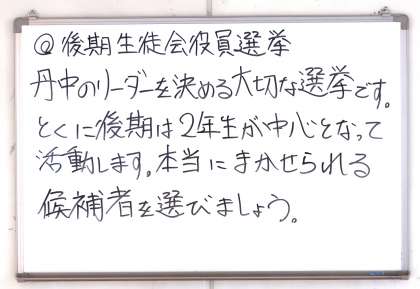 @後期生徒会役員選挙
丹中のリーダーを決める大切な選挙です。
とくに後期は2年生が中心となって
活動します。本当にまかせられる
候補者を選びましょう。